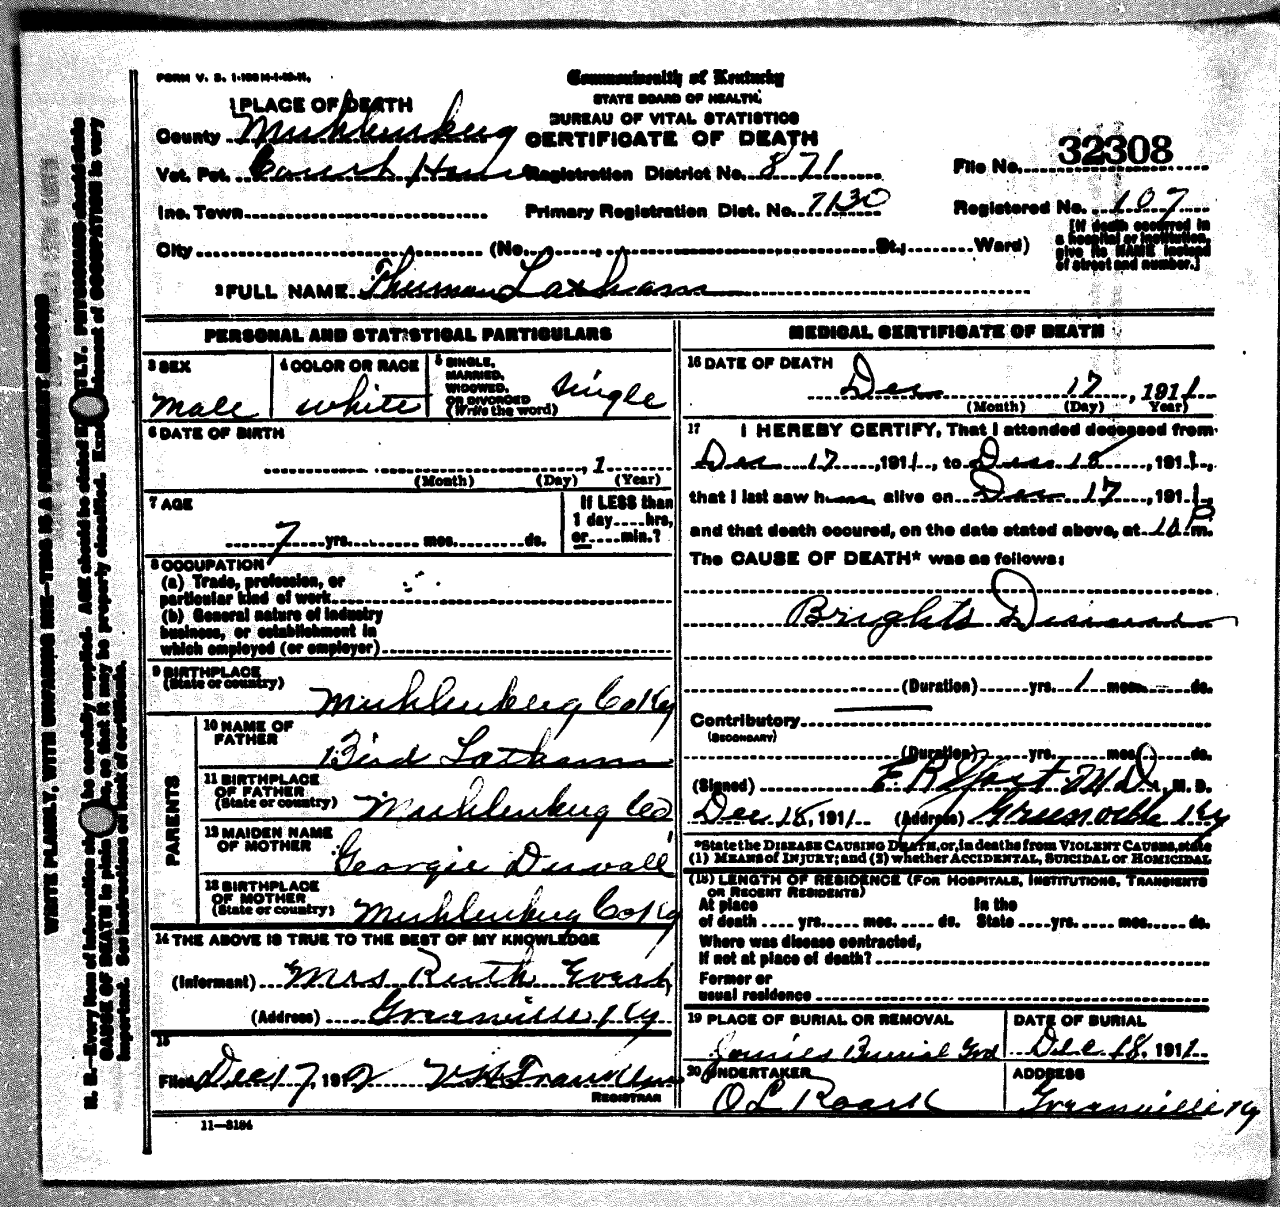 FORM V. S. 1-
Commonwealth of Kentucky
STATE BOARD OF HEALTH,
BUREAU OF VITAL STATISTICS
CERTIFICATE OF DEATH
1 PLACE OF DEATH
County Muhlenburg
Vot. Pct. Court House Registration District No. 871
File No. 32308
Inc. Town Primary Registration Dist. No. 7130
Registered No. 107
City (No. , St.; Ward)
[If death occurred in
a hospital or institution,
give its NAME instead
of street and number.]
2 FULL NAME Thurman Latham
PERSONAL AND STATISTICAL PARTICULARS
3 SEX
Male
4 COLOR OR RACE
white
5 SINGLE,
MARRIED,
WIDOWED,
OR DIVORCED
(Write the word)
single
6 DATE OF BIRTH
, 1
(Month) (Day) (Year)
7 AGE
7 yrs. mos. ds.
If LESS than
1 day hrs,
or min.?
8 OCCUPATION
(a) Trade, profession, or
particular kind of work
(b) General nature of industry
business, or establishment in
which employed (or employer)
9 BIRTHPLACE
(State or country)
Muhlenburg Co Ky
PARENTS
10 NAME OF
FATHER
Bird Latham
11 BIRTHPLACE
OF FATHER
(State or country)
Muhlenburg Co
12 MAIDEN NAME
OF MOTHER
Georgie Duvall
13 BIRTHPLACE
OF MOTHER
(State or country)
Muhlenburg Co Ky
14 THE ABOVE IS TRUE TO THE BEST OF MY KNOWLEDGE
(Informant) Mrs Ruth
(Address) Greenville Ky
15
Filed Dec 17, 191 Franklin
REGISTRAR
11-3184
MEDICAL CERTIFICATE OF DEATH
16 DATE OF DEATH
Dec 17, 1911
(Month) (Day) Year)
17 I HEREBY CERTIFY, That I attended deceased from
Dec 17, 1911, to Dec 18, 1911,
that I last saw him alive on Dec 17, 1911,
and that death occured, on the date stated above, at P m.
The CAUSE OF DEATH* was as follows:
Brights Disease
(Duration) yrs. 1 mos. ds.
Contributory
(SECONDARY)
(Duration) yrs. mos. ds.
(Signed) E. R. Yost M.D., M. D.
Dec 18, 1911 (Address) Greenville Ky
*State the DISEASE CAUSING DEATH, or, in deaths from VIOLENT CAUSES, state
(1) MEANS OF INJURY; and (2) whether ACCIDENTAL, SUICIDAL or HOMICIDAL
(18) LENGTH OF RESIDENCE (FOR HOSPITALS, INSTITUTIONS, TRANSIENTS
OR RECENT RESIDENTS)
At place In the
of death yrs. mos. ds. State yrs. mos. ds.
Where was disease contracted,
If not at place of death?
Former or
usual residence
19 PLACE OF BURIAL OR REMOVAL
Burial Grd
DATE OF BURIAL
Dec 18, 1911
20 UNDERTAKER
O L Roark
ADDRESS
Greenville Ky
WRITE PLAINLY, WITH UNFADING INK—THIS IS A PERMANENT RECORD